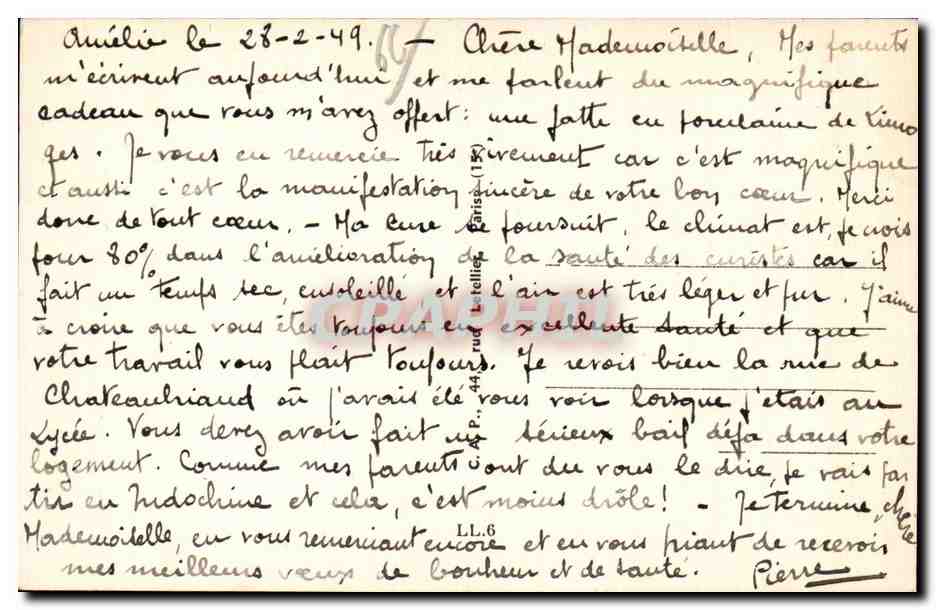 Amélie le 28-2-49. — Chère Mademoiselle, Mes parents
m'écrivent aujourd'hui et me parlent du magnifique
cadeau que vous m'avez offert : une patte en porcelaine de Limo
ges. Je vous en remercie très vivement car c'est magnifique
et aussi c'est la manifestation sincère de votre bon cœur. Merci
donc de tout cœur. — Ma cure se poursuit, le climat est, je crois
pour 80% dans l'amélioration de la santé des curistes car il
fait un temps sec, ensoleillé et l'air est très léger et pur. J'aime
à croire que vous êtes toujours en excellente santé et que
votre travail vous plait toujours. Je revois bien la rue de
Chateaubriand où j'avais été vous voir lorsque j'étais au
Lycée. Vous devez avoir fait un sérieux bail déjà dans votre
logement. Comme mes parents ont du vous le dire, je vais par
tir en Indochine et cela, c'est moins drôle ! — Je termine, chère
Mademoiselle, en vous remerciant encore et en vous priant de recevoir
mes meilleurs vœux de bonheur et de santé. Pierre
C.A.P., 44, rue Letellier, Paris (15
LL.6
CPAPHIL